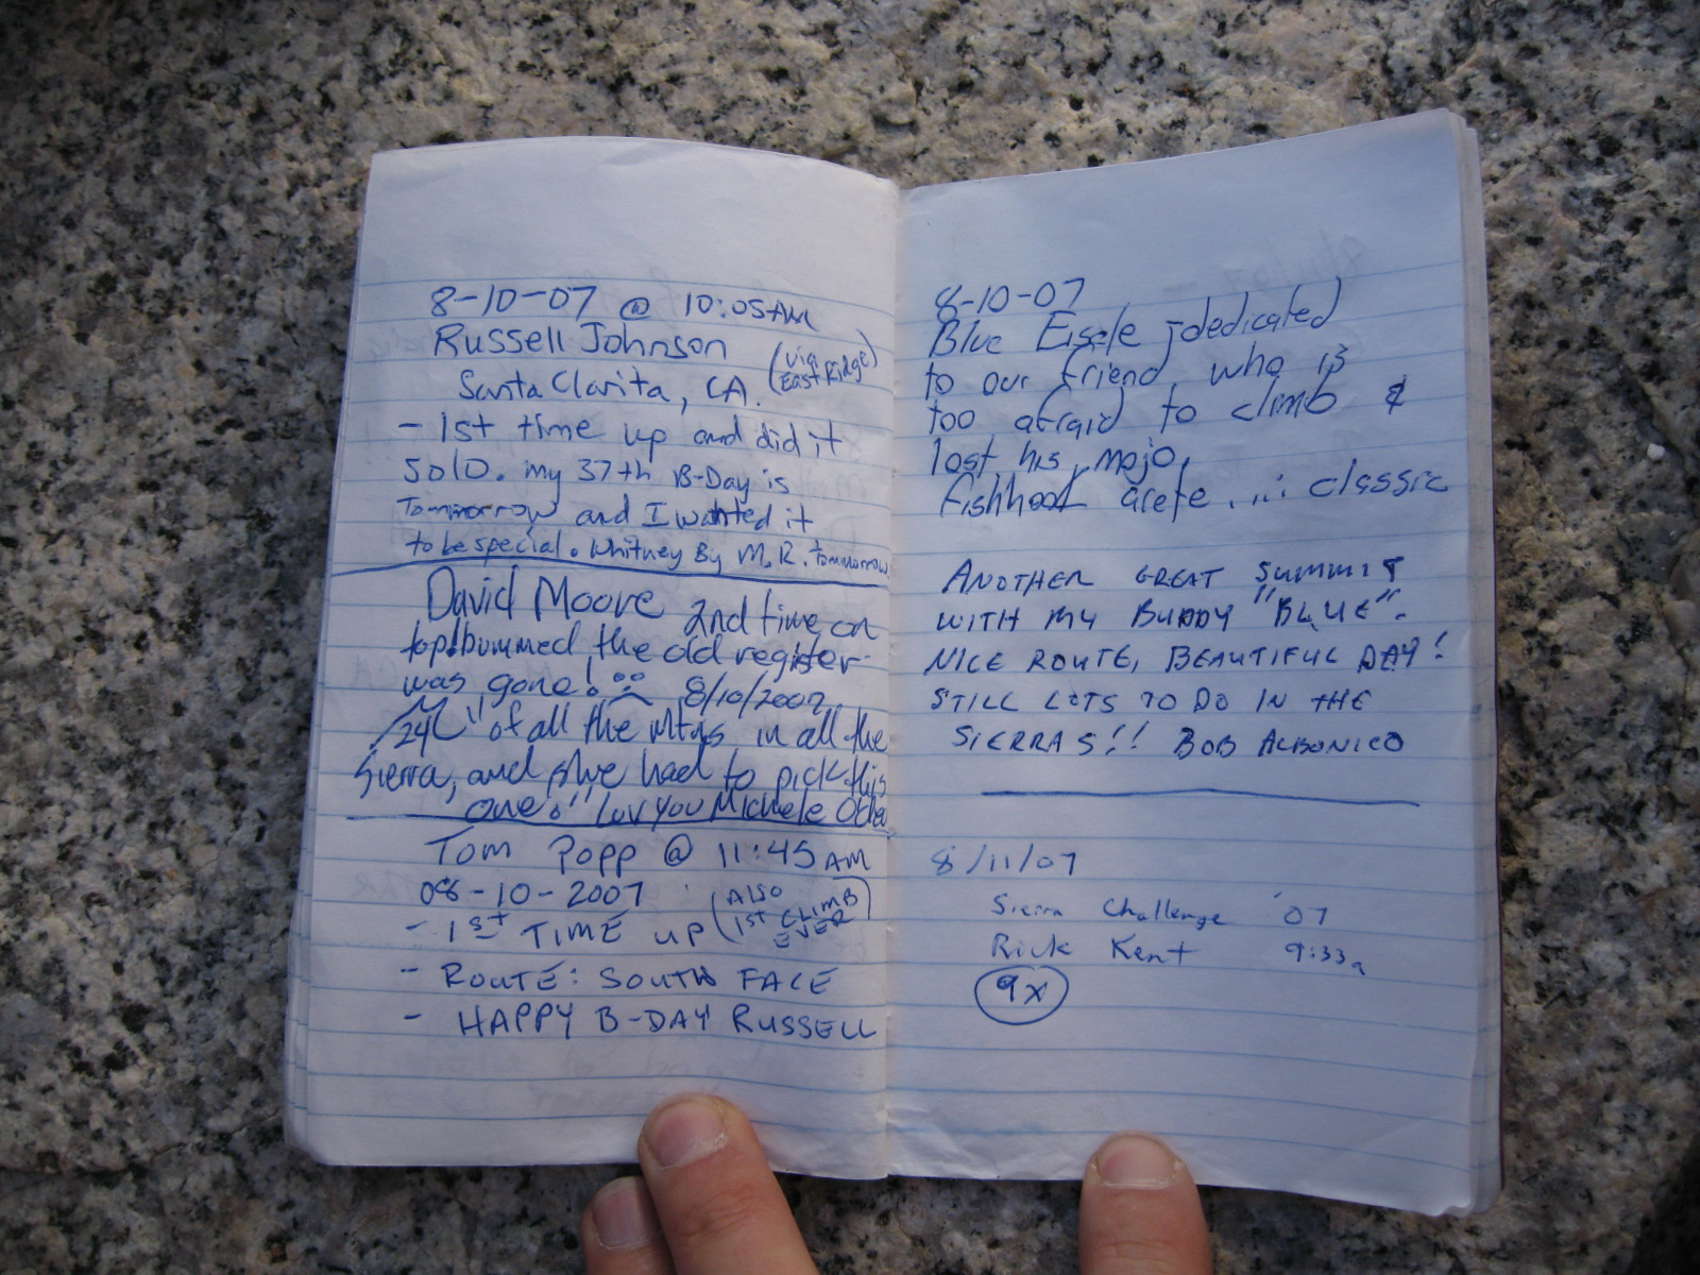 8-10-07 @ 10:05AM
Russell Johnson (via East Ridge)
Santa Clarita, CA.
- 1st time up and did it
solo. my 37th B-Day is
Tommorrow and I wanted it
to be special. Whitney By M.R. tommorrow
David Moore 2nd time on
top! bummed, the old register
was gone! 8/10/2007
"of all the Mtns in all the
Sierra, and she had to pick this
one." Luv you Michele
Tom Popp @ 11:45 AM
08-10-2007 (ALSO 1ST CLIMB EVER)
- 1st TIME UP
- ROUTE: SOUTH FACE
- HAPPY B-DAY RUSSELL
8-10-07
Blue Eisele - dedicated
to our friend, who is
too afraid to climb &
lost his mojo,
fishhook arete ... classic
ANOTHER GREAT SUMMIT
WITH MY BUDDY "BLUE".
NICE ROUTE, BEAUTIFUL DAY!
STILL LOTS TO DO IN THE
SIERRAS!! BOB ALBONICO
8/11/07
Sierra Challenge '07
Rick Kent 9:33a
9x